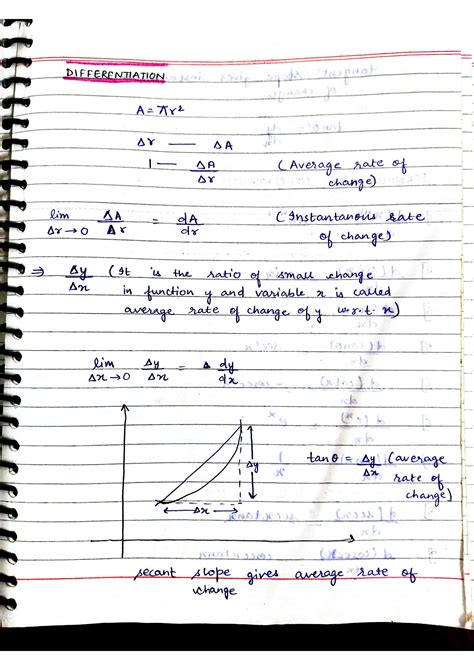 DIFFERENTIATION
A = πr²
Δr — ΔA
1 — ΔA/Δr (Average rate of
change)
lim Δr→0 ΔA/Δr = dA/dr (Instantanous rate
of change)
⇒ Δy/Δx (It is the ratio of small change
in function y and variable x is called
average rate of change of y w.r.t. x)
lim Δx→0 Δy/Δx = dy/dx
Δy
Δx
tanθ = Δy/Δx (average
rate of
change)
secant slope gives average rate of
change